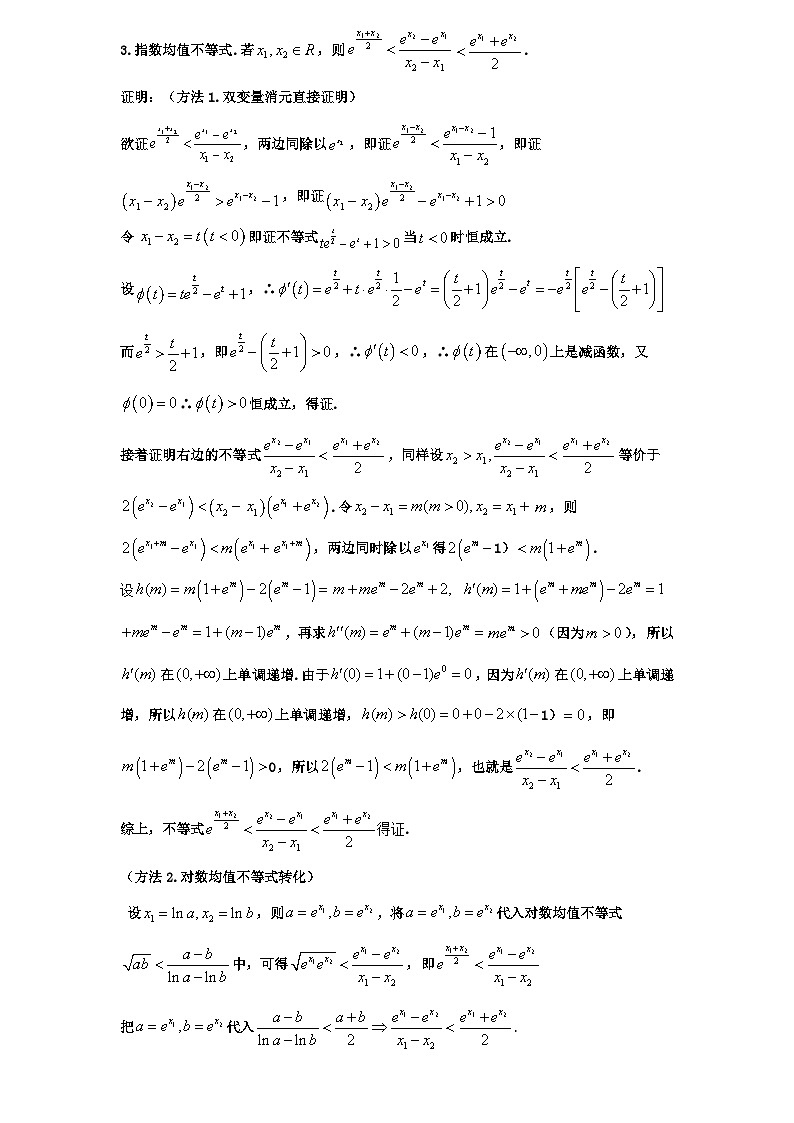 3.指数均值不等式.若 $x_1, x_2 \in R$，则 $e^{\frac{x_1+x_2}{2}} < \frac{e^{x_2}-e^{x_1}}{x_2-x_1} < \frac{e^{x_1}+e^{x_2}}{2}$.
证明:（方法1.双变量消元直接证明）
欲证 $e^{\frac{x_1+x_2}{2}} < \frac{e^{x_1}-e^{x_2}}{x_1-x_2}$，两边同除以 $e^{x_2}$，即证 $e^{\frac{x_1-x_2}{2}} < \frac{e^{x_1-x_2}-1}{x_1-x_2}$，即证
$(x_1-x_2)e^{\frac{x_1-x_2}{2}} > e^{x_1-x_2}-1$，即证 $(x_1-x_2)e^{\frac{x_1-x_2}{2}} - e^{x_1-x_2}+1>0$
令 $x_1-x_2=t(t<0)$ 即证不等式 $te^{\frac{t}{2}}-e^t+1>0$ 当 $t<0$ 时恒成立.
设 $\phi(t)=te^{\frac{t}{2}}-e^t+1$，∴ $\phi'(t)=e^{\frac{t}{2}}+t\cdot e^{\frac{t}{2}}\cdot\frac{1}{2}-e^t=\left(\frac{t}{2}+1\right)e^{\frac{t}{2}}-e^t=-e^{\frac{t}{2}}\left[e^{\frac{t}{2}}-\left(\frac{t}{2}+1\right)\right]$
而 $e^{\frac{t}{2}}>\frac{t}{2}+1$，即 $e^{\frac{t}{2}}-\left(\frac{t}{2}+1\right)>0$，∴ $\phi'(t)<0$，∴ $\phi(t)$ 在 $(-\infty,0)$ 上是减函数，又
$\phi(0)=0$ ∴ $\phi(t)>0$ 恒成立，得证.
接着证明右边的不等式 $\frac{e^{x_2}-e^{x_1}}{x_2-x_1}<\frac{e^{x_1}+e^{x_2}}{2}$，同样设 $x_2>x_1$, $\frac{e^{x_2}-e^{x_1}}{x_2-x_1}<\frac{e^{x_1}+e^{x_2}}{2}$ 等价于
$2(e^{x_2}-e^{x_1})<(x_2-x_1)(e^{x_1}+e^{x_2})$.令 $x_2-x_1=m(m>0), x_2=x_1+m$，则
$2(e^{x_1+m}-e^{x_1})<m(e^{x_1}+e^{x_1+m})$，两边同时除以 $e^{x_1}$ 得 $2(e^m-1）<m(1+e^m)$.
设 $h(m)=m(1+e^m)-2(e^m-1)=m+me^m-2e^m+2$, $h'(m)=1+(e^m+me^m)-2e^m=1$
$+me^m-e^m=1+(m-1)e^m$，再求 $h''(m)=e^m+(m-1)e^m=me^m>0$（因为 $m>0$），所以
$h'(m)$ 在 $(0,+\infty)$ 上单调递增.由于 $h'(0)=1+(0-1)e^0=0$，因为 $h'(m)$ 在 $(0,+\infty)$ 上单调递
增，所以 $h(m)$ 在 $(0,+\infty)$ 上单调递增，$h(m)>h(0)=0+0-2\times(1-1）=0$，即
$m(1+e^m)-2(e^m-1)>0$，所以 $2(e^m-1)<m(1+e^m)$，也就是 $\frac{e^{x_2}-e^{x_1}}{x_2-x_1}<\frac{e^{x_1}+e^{x_2}}{2}$.
综上，不等式 $e^{\frac{x_1+x_2}{2}}<\frac{e^{x_2}-e^{x_1}}{x_2-x_1}<\frac{e^{x_1}+e^{x_2}}{2}$ 得证.
（方法2.对数均值不等式转化）
设 $x_1=\ln a, x_2=\ln b$，则 $a=e^{x_1},b=e^{x_2}$，将 $a=e^{x_1},b=e^{x_2}$ 代入对数均值不等式
$\sqrt{ab}<\frac{a-b}{\ln a-\ln b}$ 中，可得 $\sqrt{e^{x_1}e^{x_2}}<\frac{e^{x_1}-e^{x_2}}{x_1-x_2}$，即 $e^{\frac{x_1+x_2}{2}}<\frac{e^{x_1}-e^{x_2}}{x_1-x_2}$
把 $a=e^{x_1},b=e^{x_2}$ 代入 $\frac{a-b}{\ln a-\ln b}<\frac{a+b}{2}\Rightarrow\frac{e^{x_1}-e^{x_2}}{x_1-x_2}<\frac{e^{x_1}+e^{x_2}}{2}$.